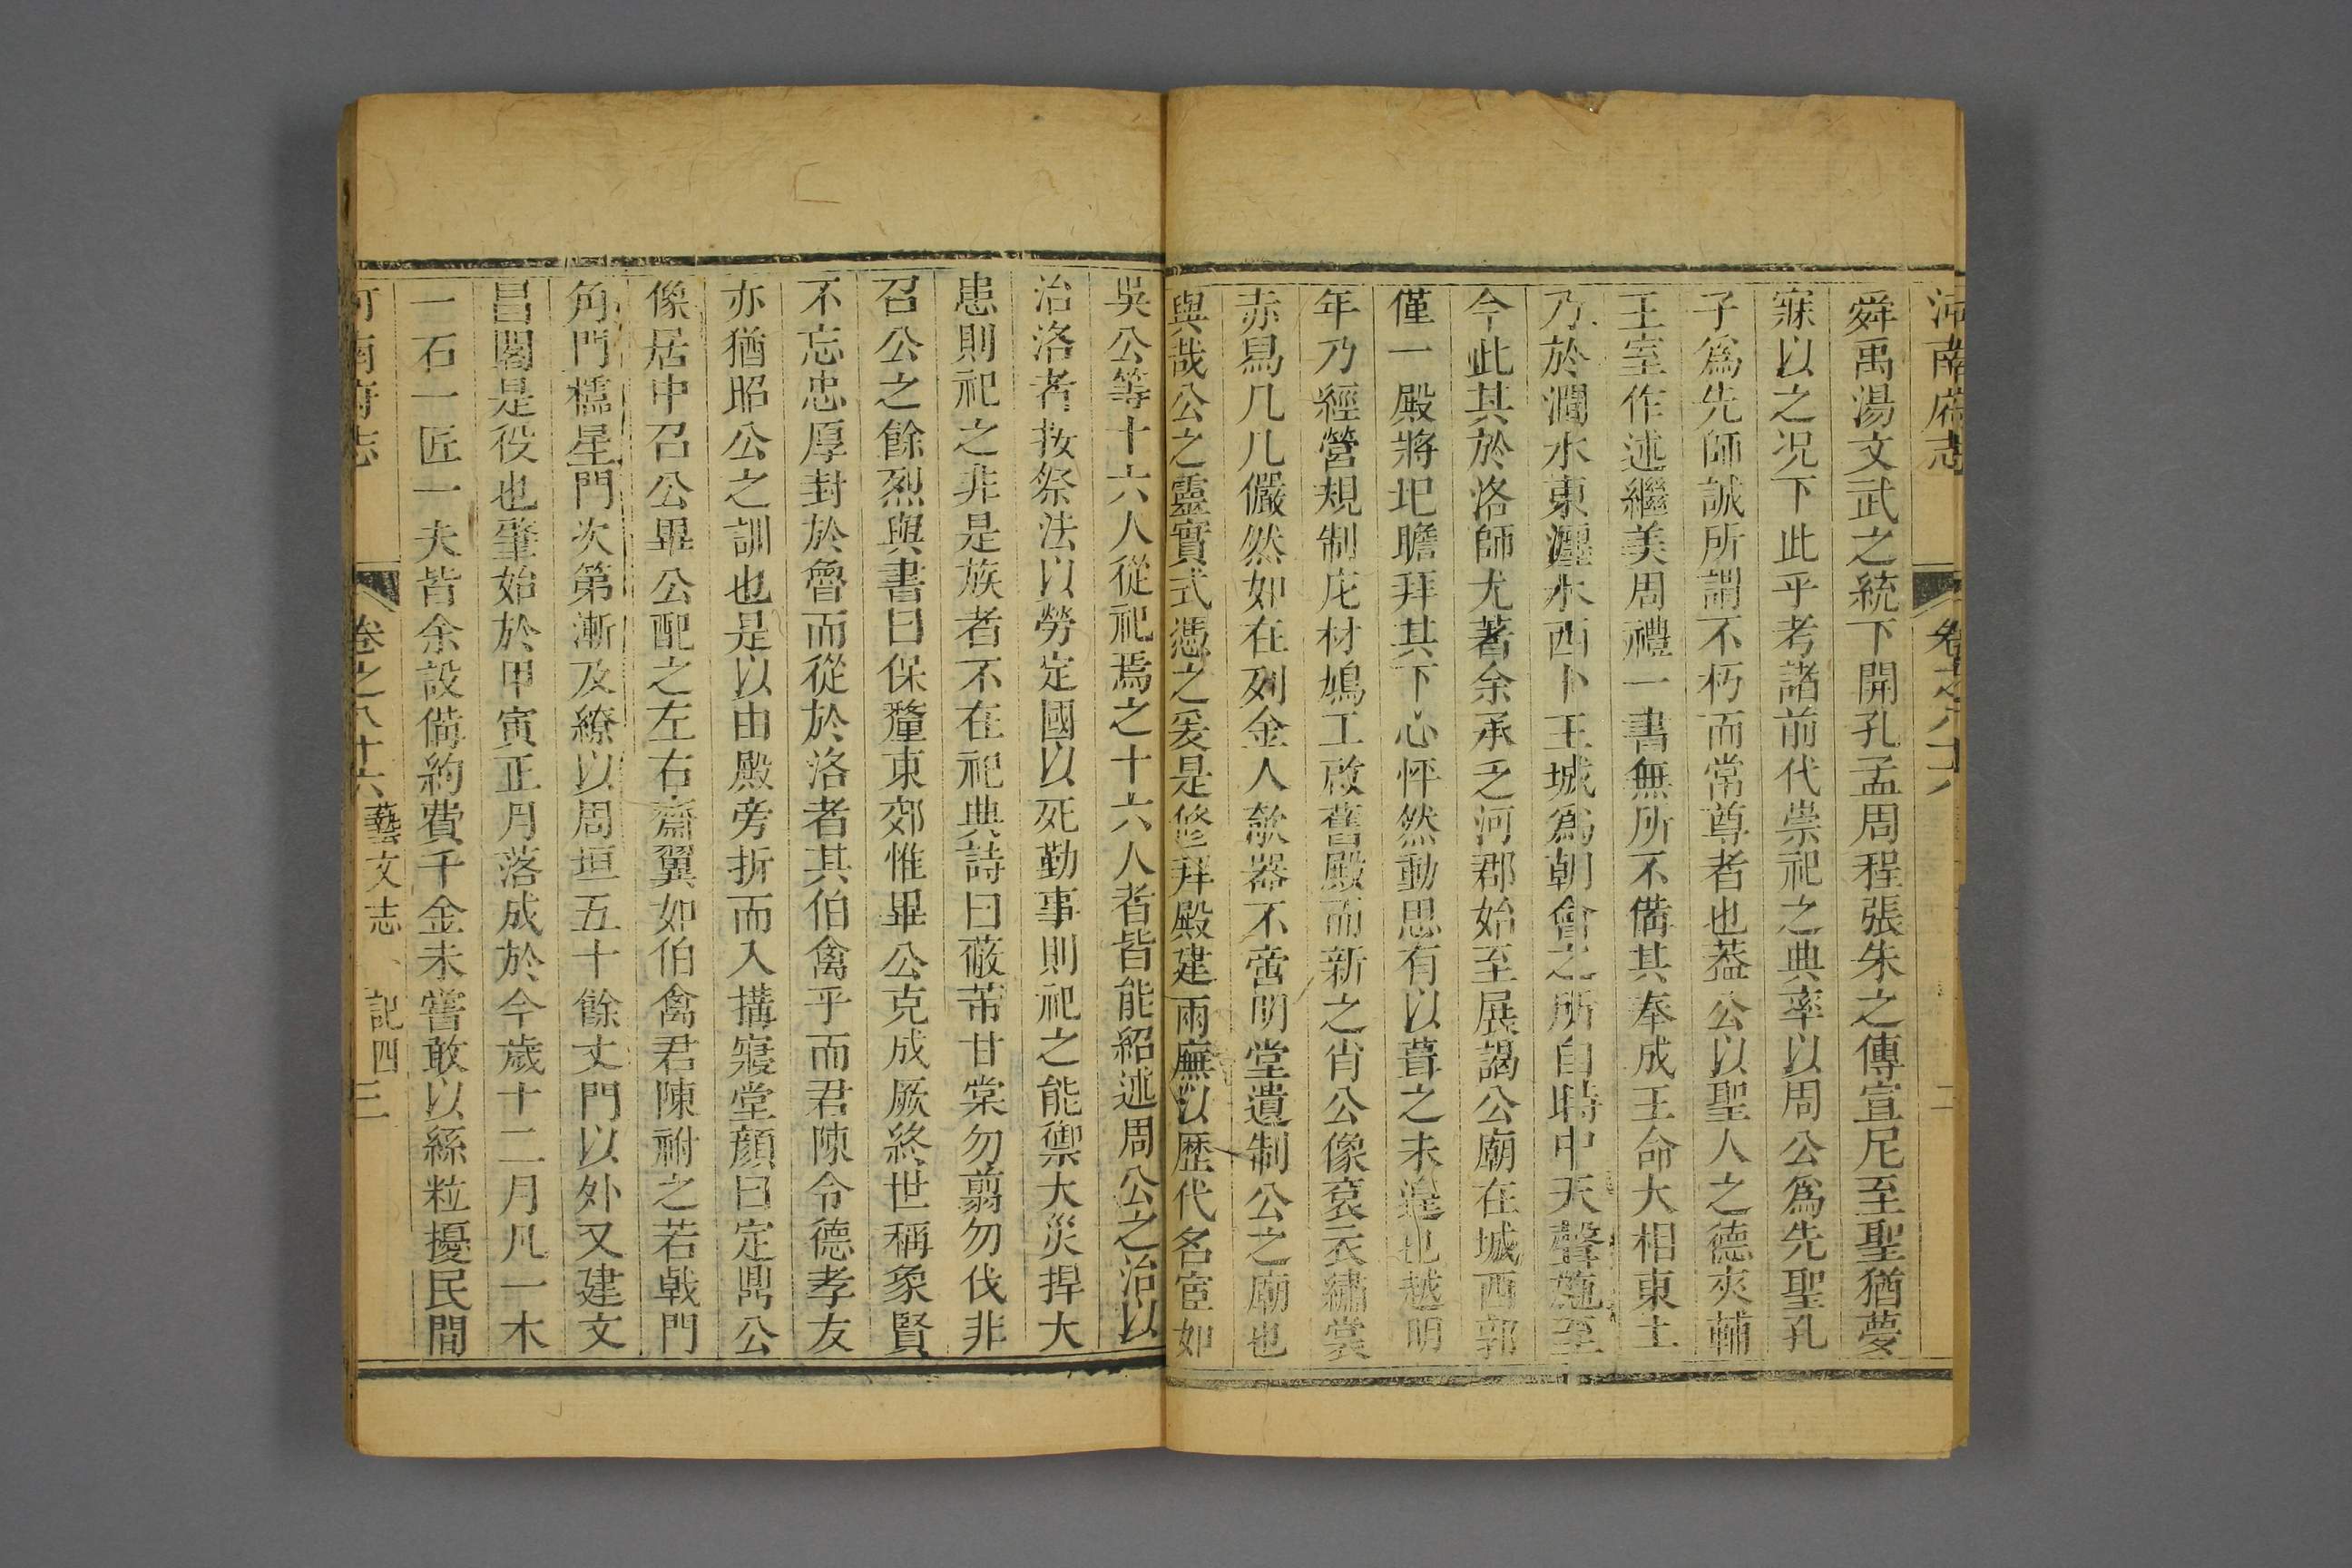 河南府志 卷之八十六 二
舜禹湯文武之統下開孔孟周程張朱之傳宣尼至聖猶夢
寐以之况下此乎考諸前代祟祀之典率以周公爲先聖孔
子爲先師誠所謂不朽而常尊者也葢公以聖人之德夾輔
王室作述繼美周禮一書無所不備其奉成王命大相東土
乃於澗水東瀍水西卜王城爲朝會之所自時中天聲施至
今此其於洛師尤著余承乏河郡始至展謁公廟在城西郭
僅一殿將圯瞻拜其下心怦然動思有以葺之未遑也越明
年乃經營規制庀材鳩工啟舊殿而新之肖公像袞衣繡裳
赤舄几几儼然如在列金人欹器不啻明堂遺制公之廟也
與哉公之靈實式憑之爰是修拜殿建兩廡以歷代名宦如
吳公等十六人從祀焉之十六人者皆能紹述周公之治以
治洛者按祭法以勞定國以死勤事則祀之能禦大災捍大
患則祀之非是族者不在祀典詩曰蔽芾甘棠勿翦勿伐非
召公之餘烈與書曰保釐東郊惟畢公克成厥終世稱象賢
不忘忠厚封於魯而從於洛者其伯禽乎而君陳令德孝友
亦猶昭公之訓也是以由殿旁折而入搆寢堂顔曰定鼎公
像居中召公畢公配之左右齋翼如伯禽君陳祔之若戟門
角門櫺星門次第漸及繚以周垣五十餘丈門以外又建文
昌閣是役也肇始於甲寅正月落成於今歲十二月凡一木
一石一匠一夫皆余設備約費千金未嘗敢以絲粒擾民間
河南府志 卷之八十六 藝文志 記四 三